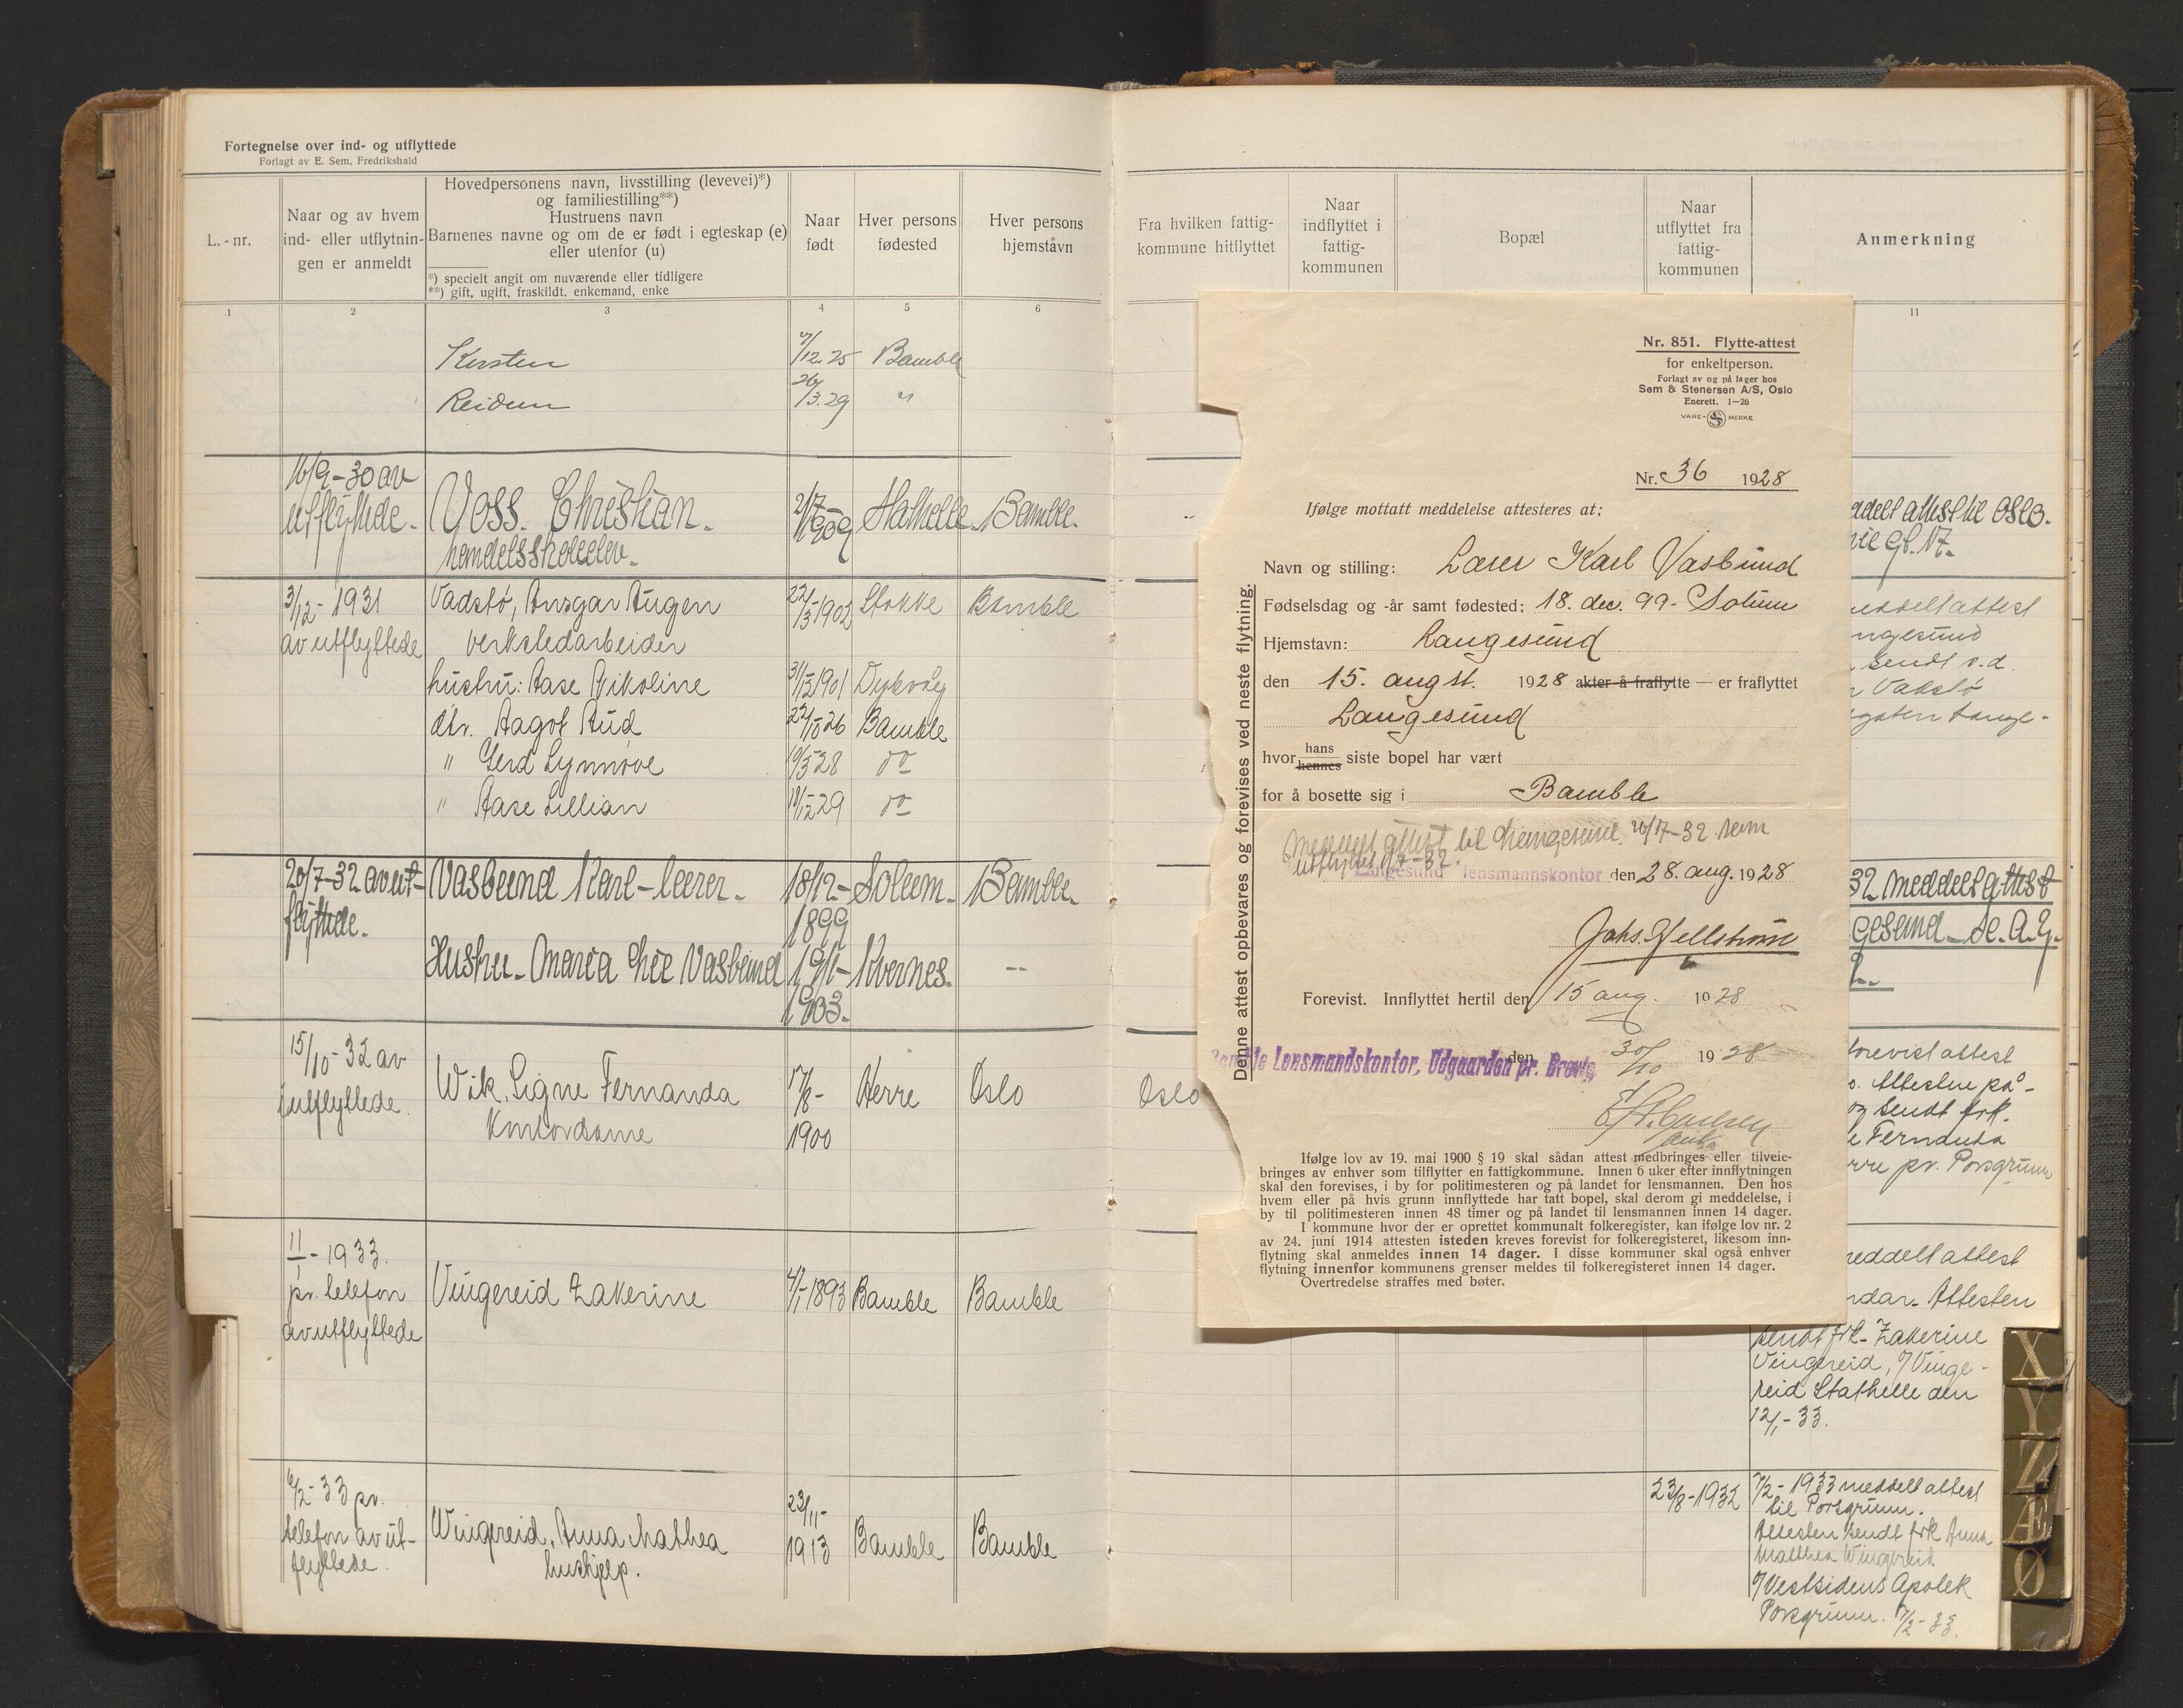 Fortegnelse over ind- og utflyttede
Forlagt av E. Sem, Fredrikshald
L.-nr.
Naar og av hvem
ind- eller utflytnin-
gen er anmeldt
Hovedpersonens navn, livsstilling (levevei)*)
og familiestilling**)
Hustruens navn
Barnenes navne og om de er født i egteskap (e)
eller utenfor (u)
*) specielt angit om nuværende eller tidligere
**) gift, ugift, fraskildt, enkemand, enke
Naar
født
Hver persons
fødested
Hver persons
hjemstavn
1
2
3
4
5
6
Kirsten
7/12.25
Bamble
Reidun
26/3.29
"
16/9-30 av
utflyttede.
Voss. Christian.
handelsskoleelev.
2/7-
1909
Stathelle
Bamble.
3/12-1931
av utflyttede
Vadstö, Ansgar Augen
verkstedarbeider
22/3 1902
Stokke
Bamble
hustru: Aase Nikoline
31/12 1901
Dybvåg
dtr. Aagot Aud
22/10 26
Bamble
" Gerd Synnöve
10/5 28
do
" Aase Lillian
18/12 29
do
20/7-32 av ut-
flyttede.
Vasbund Karl - lærer.
18/12-
1899
Solum.
Bamble.
Hustru - Maria Lie Vasbund
19/1-
1903.
Kvernes.
--
15/10-32 av
utflyttede.
Wik, Signe Fernanda
Kontordame
17/8-
1900
Herre
Oslo
11/1-1933.
pr. telefon
av utflyttede
Vingereid Zakerine
4/1-1893
Bamble
Bamble
6/2-33 pr.
telefon av ut-
flyttede.
Wingereid, Anna Mathea
hushjelp.
23/11-
1913
Bamble
Bamble
Fra hvilken fattig-
kommune hitflyttet
Naar
indflyttet i
fattig-
kommunen
Bopæl
Naar
utflyttet fra
fattig-
kommunen
Anmerkning
11
Oslo
Nr. 851. Flytte-attest
for enkeltperson.
Forlagt av og på lager hos
Sem & Stenersen A/S, Oslo
Enerett. 1-26
VARE- S MERKE
Nr. 36 1928
Ifølge mottatt meddelelse attesteres at:
Navn og stilling: Lærer Karl Vasbund
Fødselsdag og -år samt fødested: 18. dec. 99 - Solum
Hjemstavn: Langesund
den 15. august. 1928 akter å fraflytte — er fraflyttet
Langesund
hvor hans hennes siste bopel har vært
for å bosette sig i Bamble
Meddelt attest til Langesund 20/7-32 som
utflyttet 1/7-32.
Langesund lensmannskontor den 28. aug. 1928
Johs. Hellstrøm
Forevist. Innflyttet hertil den 15 aug. 1928
Bamble Lensmandskontor, Udgaarden pr. Brevig den 30/10 1928
Denne attest opbevares og forevises ved neste flytning.
Ifølge lov av 19. mai 1900 § 19 skal sådan attest medbringes eller tilveie-
bringes av enhver som tilflytter en fattigkommune. Innen 6 uker efter innflytningen
skal den forevises, i by for politimesteren og på landet for lensmannen. Den hos
hvem eller på hvis grunn innflyttede har tatt bopel, skal derom gi meddelelse, i
by til politimesteren innen 48 timer og på landet til lensmannen innen 14 dager.
I kommune hvor der er oprettet kommunalt folkeregister, kan ifølge lov nr. 2
av 24. juni 1914 attesten isteden kreves forevist for folkeregisteret, likesom inn-
flytning skal anmeldes innen 14 dager. I disse kommuner skal også enhver
flytning innenfor kommunens grenser meldes til folkeregisteret innen 14 dager.
Overtredelse straffes med bøter.
attest til Oslo.
meddelt attest
sendt s.d.
Vadstö
32 meddelt attest
gesund
forevist attest
Attesten på-
og sendt frk.
Fernanda
rre pr. Porsgrunn
meddelt attest
Attesten
sendt frk. Zakerine
Vingereid, Vinge-
reid Stathelle den
12/1-33.
23/8-1932
7/2-1933 meddelt attest
til Porsgrunn.
Attesten sendt frk Anna
Mathea Wingereid
Vestsidens Apotek
Porsgrunn. 7/2-33.
X
Y
Z
Æ
Ø